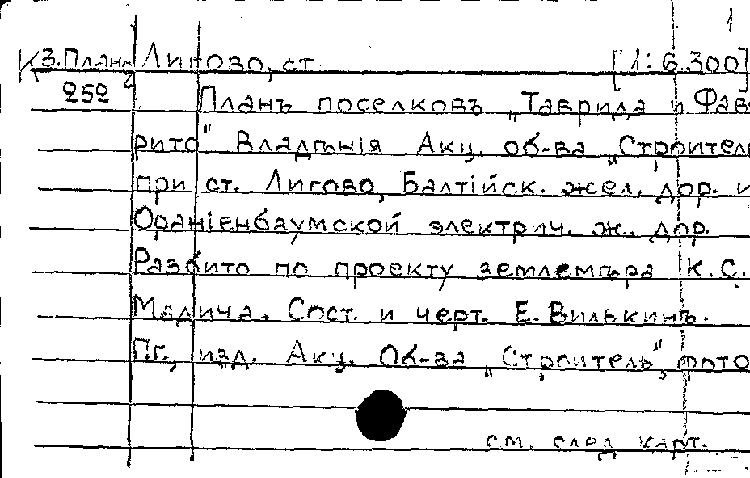 1
К3.План Лигово, ст. [1:6.300]
2
252 Планъ поселковъ „Таврида и Фав
рито" Владѣнія Акц. об-ва „Строитель
при ст. Лигово, Балтійск. жел. дор. и
Ораніенбаумской электрич. ж. дор.
Разбито по проекту землемѣра К.С.
Мадича. Сост. и черт. Е. Вилькинъ.
Пг., изд. Акц. Об-ва „Строитель", фото
см. след карт.